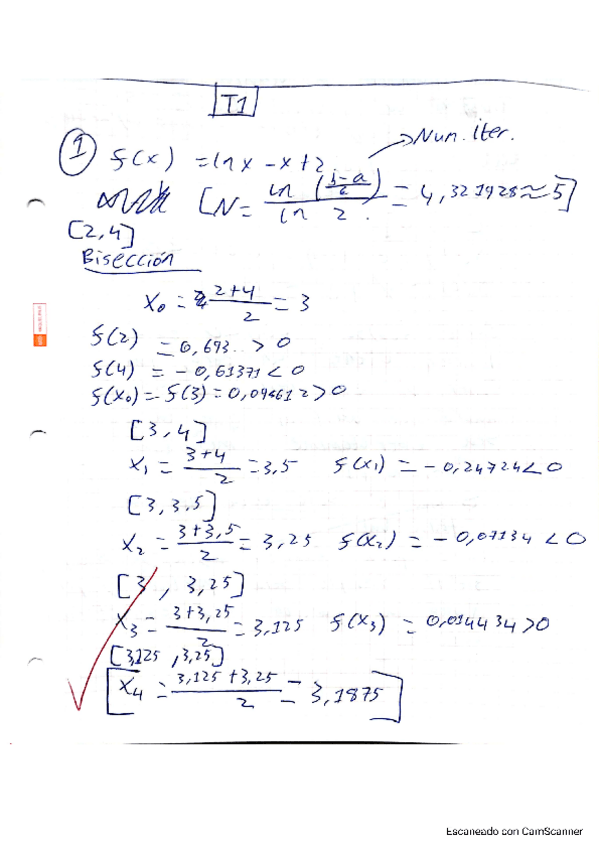 T1
① f(x) = ln x - x + 2 → Num. iter.
[N = ln ((b-a)/2) / ln 2 = 4,321928 ≈ 5]
[2,4]
Bisección
x₀ = (2+4)/2 = 3
f(2) = 0,693.. > 0
f(4) = -0,61371 < 0
f(x₀) = f(3) = 0,098612 > 0
[3, 4]
x₁ = (3+4)/2 = 3,5 f(x₁) = -0,24724 < 0
[3, 3.5]
x₂ = (3+3,5)/2 = 3,25 f(x₂) = -0,07134 < 0
[3, 3,25]
x₃ = (3+3,25)/2 = 3,125 f(x₃) = 0,014434 > 0
[3,125, 3,25]
[x₄ = (3,125+3,25)/2 = 3,1875]
Escaneado con CamScanner